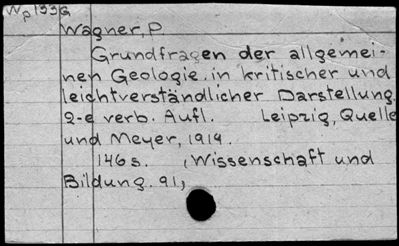 Wp193G
Wagner, P
Grundfragen der allgemei-
nen Geologie in kritischer und
leichtverständlicher Darstellung.
2-e verb. Aufl. Leipzig, Quelle
und Meyer, 1919.
146 s. (Wissenschaft und
Bildung. 91,